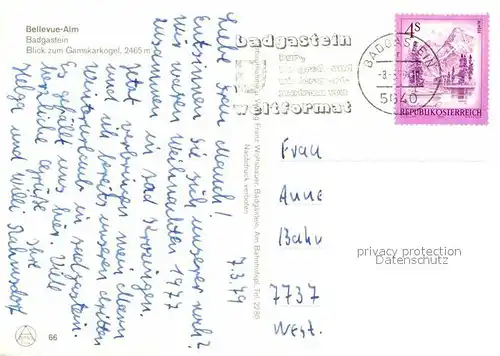 Bellevue-Alm
Badgastein
Blick zum Gamskarkogel, 2465 m
7.3.79
Liebe Frau Mauch!
Entsinnen Sie sich unserer noch?
wir waren Weihnachten 1977
zusammen in Bad Krozingen.
Jetzt verbringen mein Mann
und ich bereits unseren dritten
Winterurlaub in Badgastein.
Es gefällt uns hier. Viele
herzliche Grüße Ihre
Helga und Willi
66
Franz Wolfsbauer, Badgastein, Am Bahnhofspl., Tel. 2280
Nachdruck verboten
badgastein
weltformat
BADGASTEIN
5640
4S
REPUBLIK ÖSTERREICH
Frau
Anne
Bahr
7737
West.
privacy protection
Datenschutz